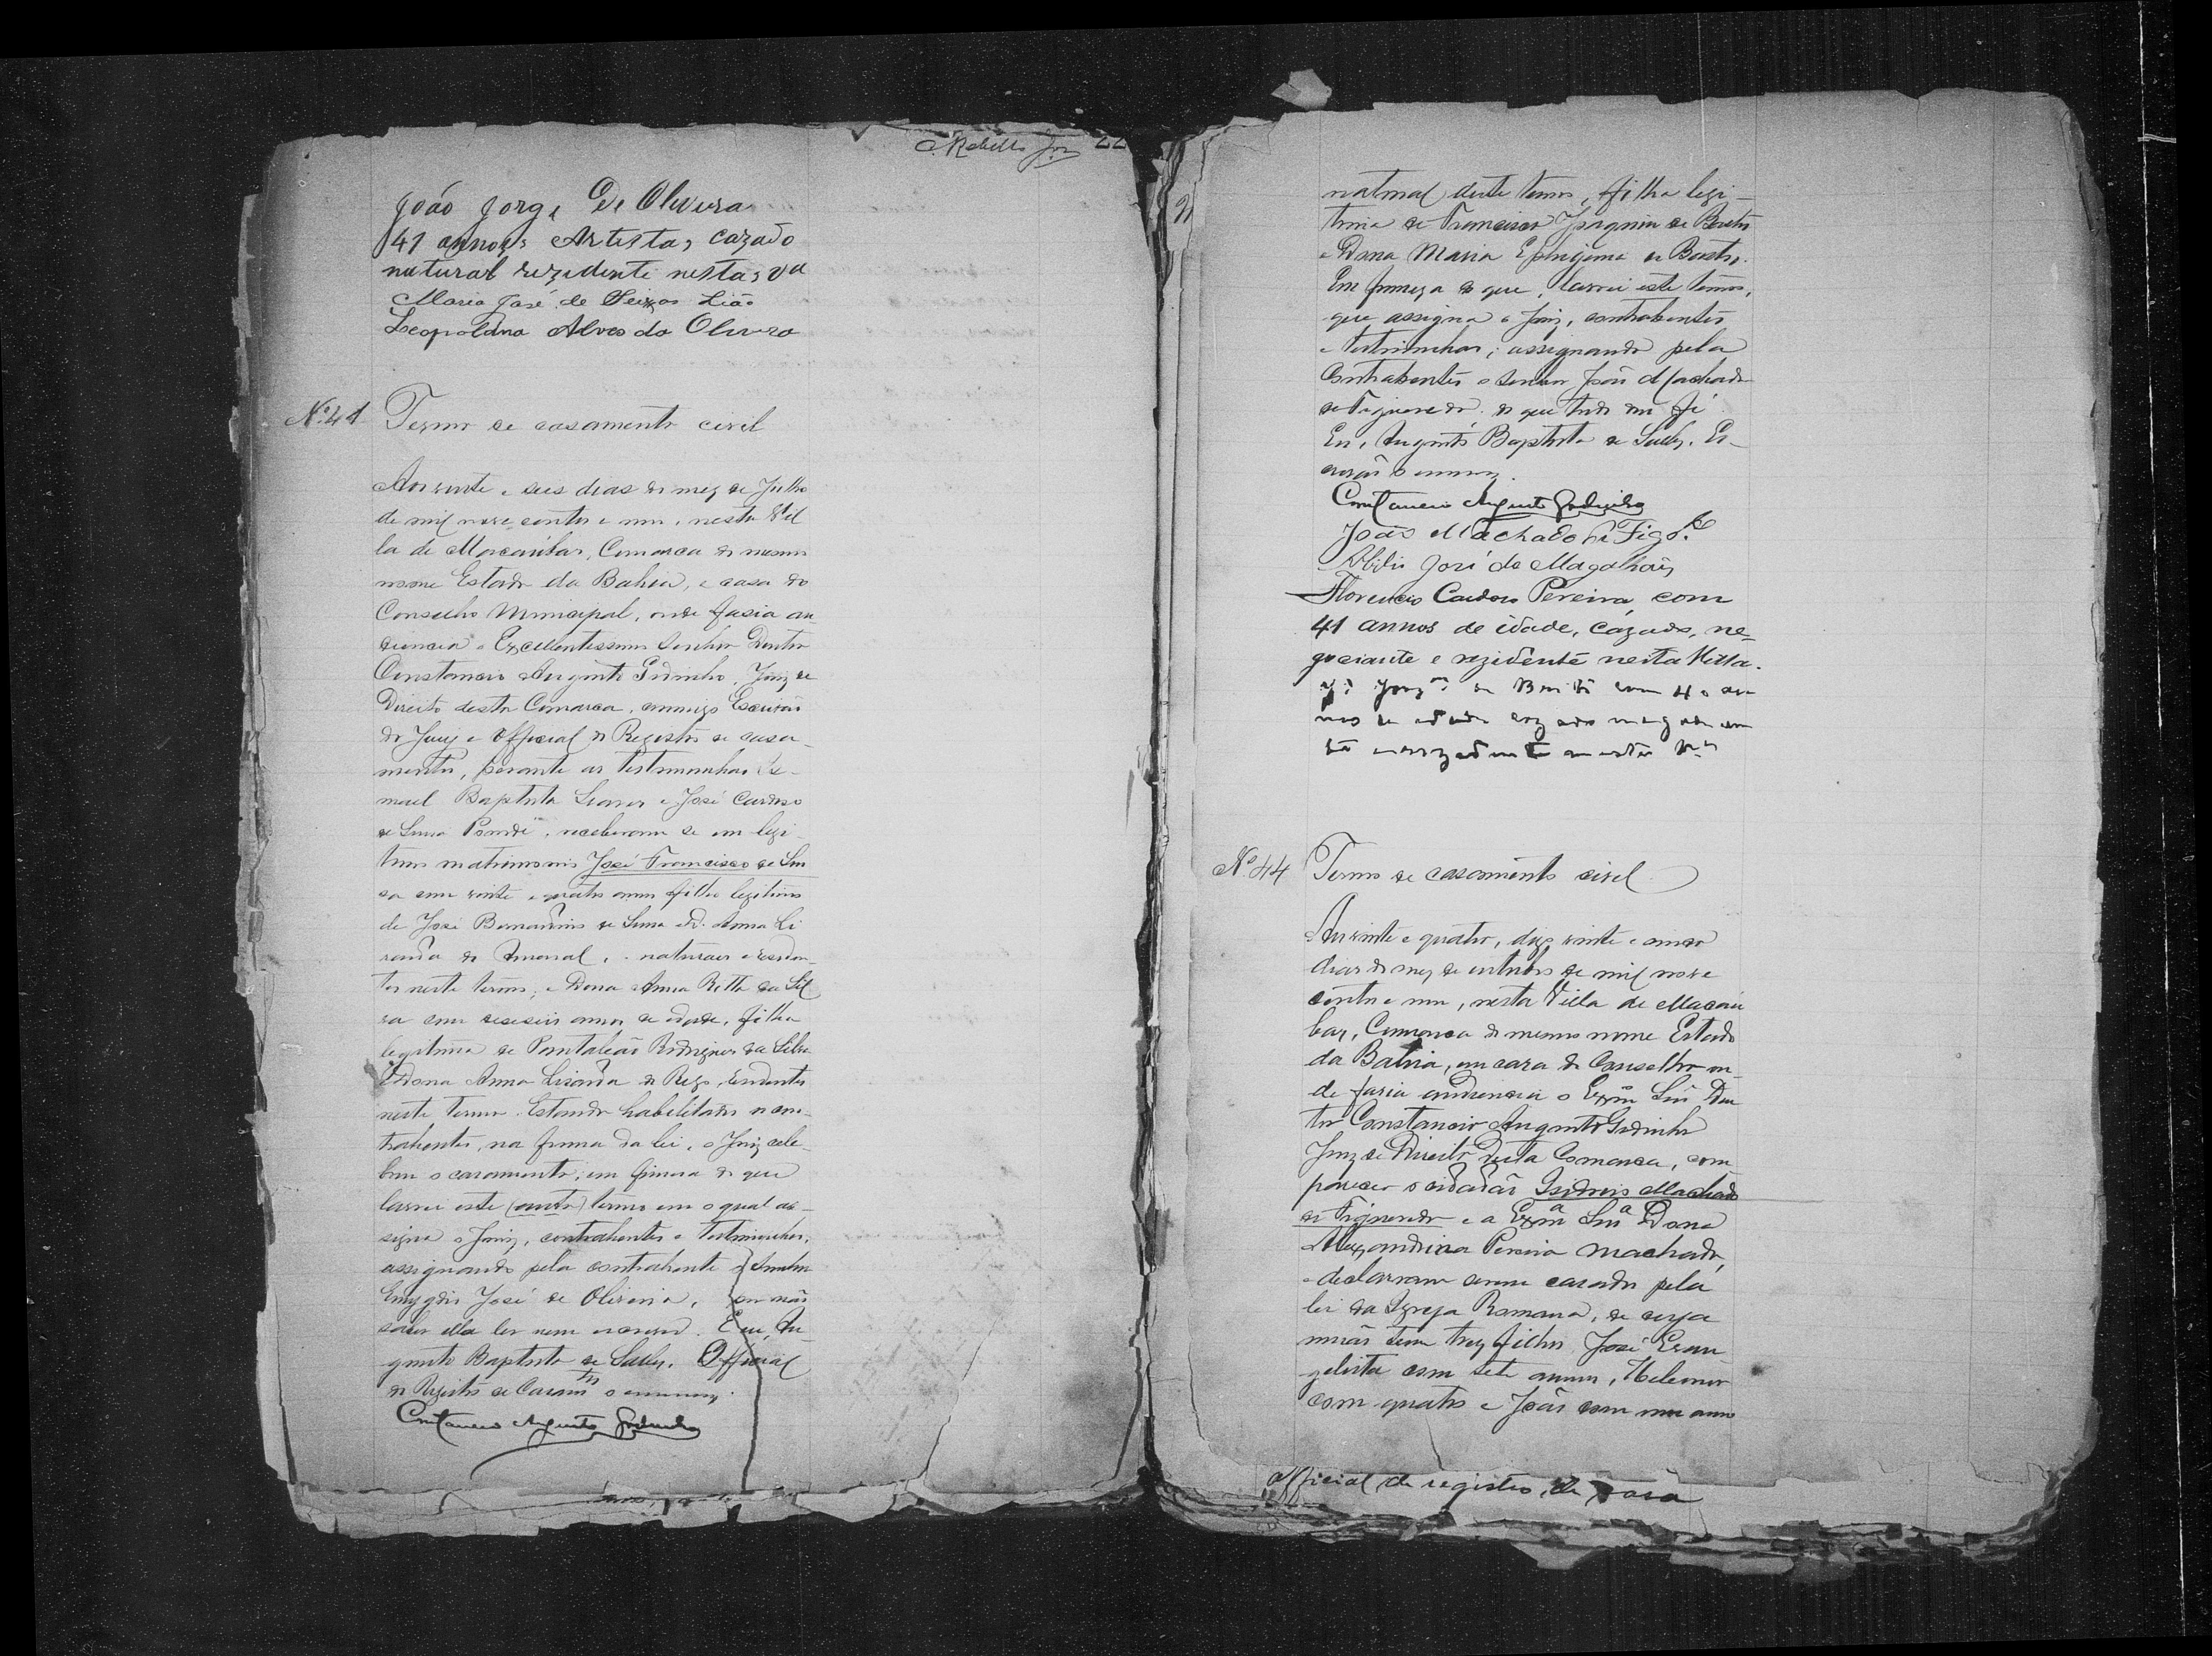 C. Rabello Jor 22
João Jorge De Olivera
41 annos, Artista, cazado
natural rezidente nesta va
Maria José de Seixas Lião
Leopoldina Alves do Olivera
No 41 Termo de casamento civil
Aos vinte e seis dias do mez de Julho
de mil nove centos e um, nesta Vil
la de Macaúbas, Comarca do mesmo
nome Estado da Bahia, e casa do
Conselho Municipal, onde fasia au
diencia o Excellentissimo Senhor Doutor
Constancio Augusto Godinho, Juiz de
Direito desta Comarca, commigo Escrivão
do Jury e Official do Registro de casa-
mentos, perante as testemunhas Is-
mael Baptista Soares e José Cardoso
de Lima, receberam se em legi-
timo matrimonio José Francisco de Sou
sa com vinte e quatro annos filho legitimo
de José Bernardino de Lima e D. Anna Li
do Amaral, naturaes e residen-
tes neste termo, e Dona Anna Ritta da Sil
va com deseseis annos de idade, filha
legitima de Pantaleão Rodrigues da Silva
e Dona Anna do Rego, residentes
neste termo. Estando habilitados os con-
trahentes, na forma da lei, o Juiz cele-
brou o casamento; em firmesa do que
lavrei este (auto) termo em o qual as-
signa o Juiz, contrahentes e testimunhas,
assignando pela contrahente o Senhor
Emygdio José de Oliveira, por não
saber ella ler nem escrever. Eu, Au-
gusto Baptista de, Official
do Registro de Casamtos o escrevy.
Constancio Augusto Godinho
natural deste termo, filha legi-
tima de Francisco Joaquim de Britto
e Dona Maria Ephigenia de Britto.
Em firmeza do que, lavrei este termo,
que assigna o Juiz, contrahentes
e testimunhas; assignando pela
Contrahente o Senhor João Machado
de Figueredo do que tudo dou fé
Eu, Augusto Baptista de, Es-
crivão o escrevy.
Constancio Augusto Godinho
João Machado de Figdo
Abilio José de Magalhães
Florencio Cardoso Pereira, com
41 annos de idade, cazado, ne-
gociante e rezidente nesta Villa.
de Britto com 40 an
nos de edade cazado negocian
te e rezedente nesta Va
No 44 Termo de casamento civel
Aos vinte e quatro, digo vinte e cinco
dias do mez de outubro de mil nove
centos e um, nesta Villa de Macaú
bas, Comarca do mesmo nome Estado
da Bahia, em casa do Conselho on-
de fasia audiencia o Exmo Snr Dou
tor Constancio Augusto Godinho
Juiz de Direito desta Comarca, com
pareceo o cidadão Isidorio Machado
de Figueredo e a Exma Snra Dona
Alexandrina Pereira Machado,
e declararam serem casados pela
lei da Igreja Romana, de cuja
união tem trez filhos José Evan
gelista com sete annos,
com quatro e João com um anno
official de registro de casa